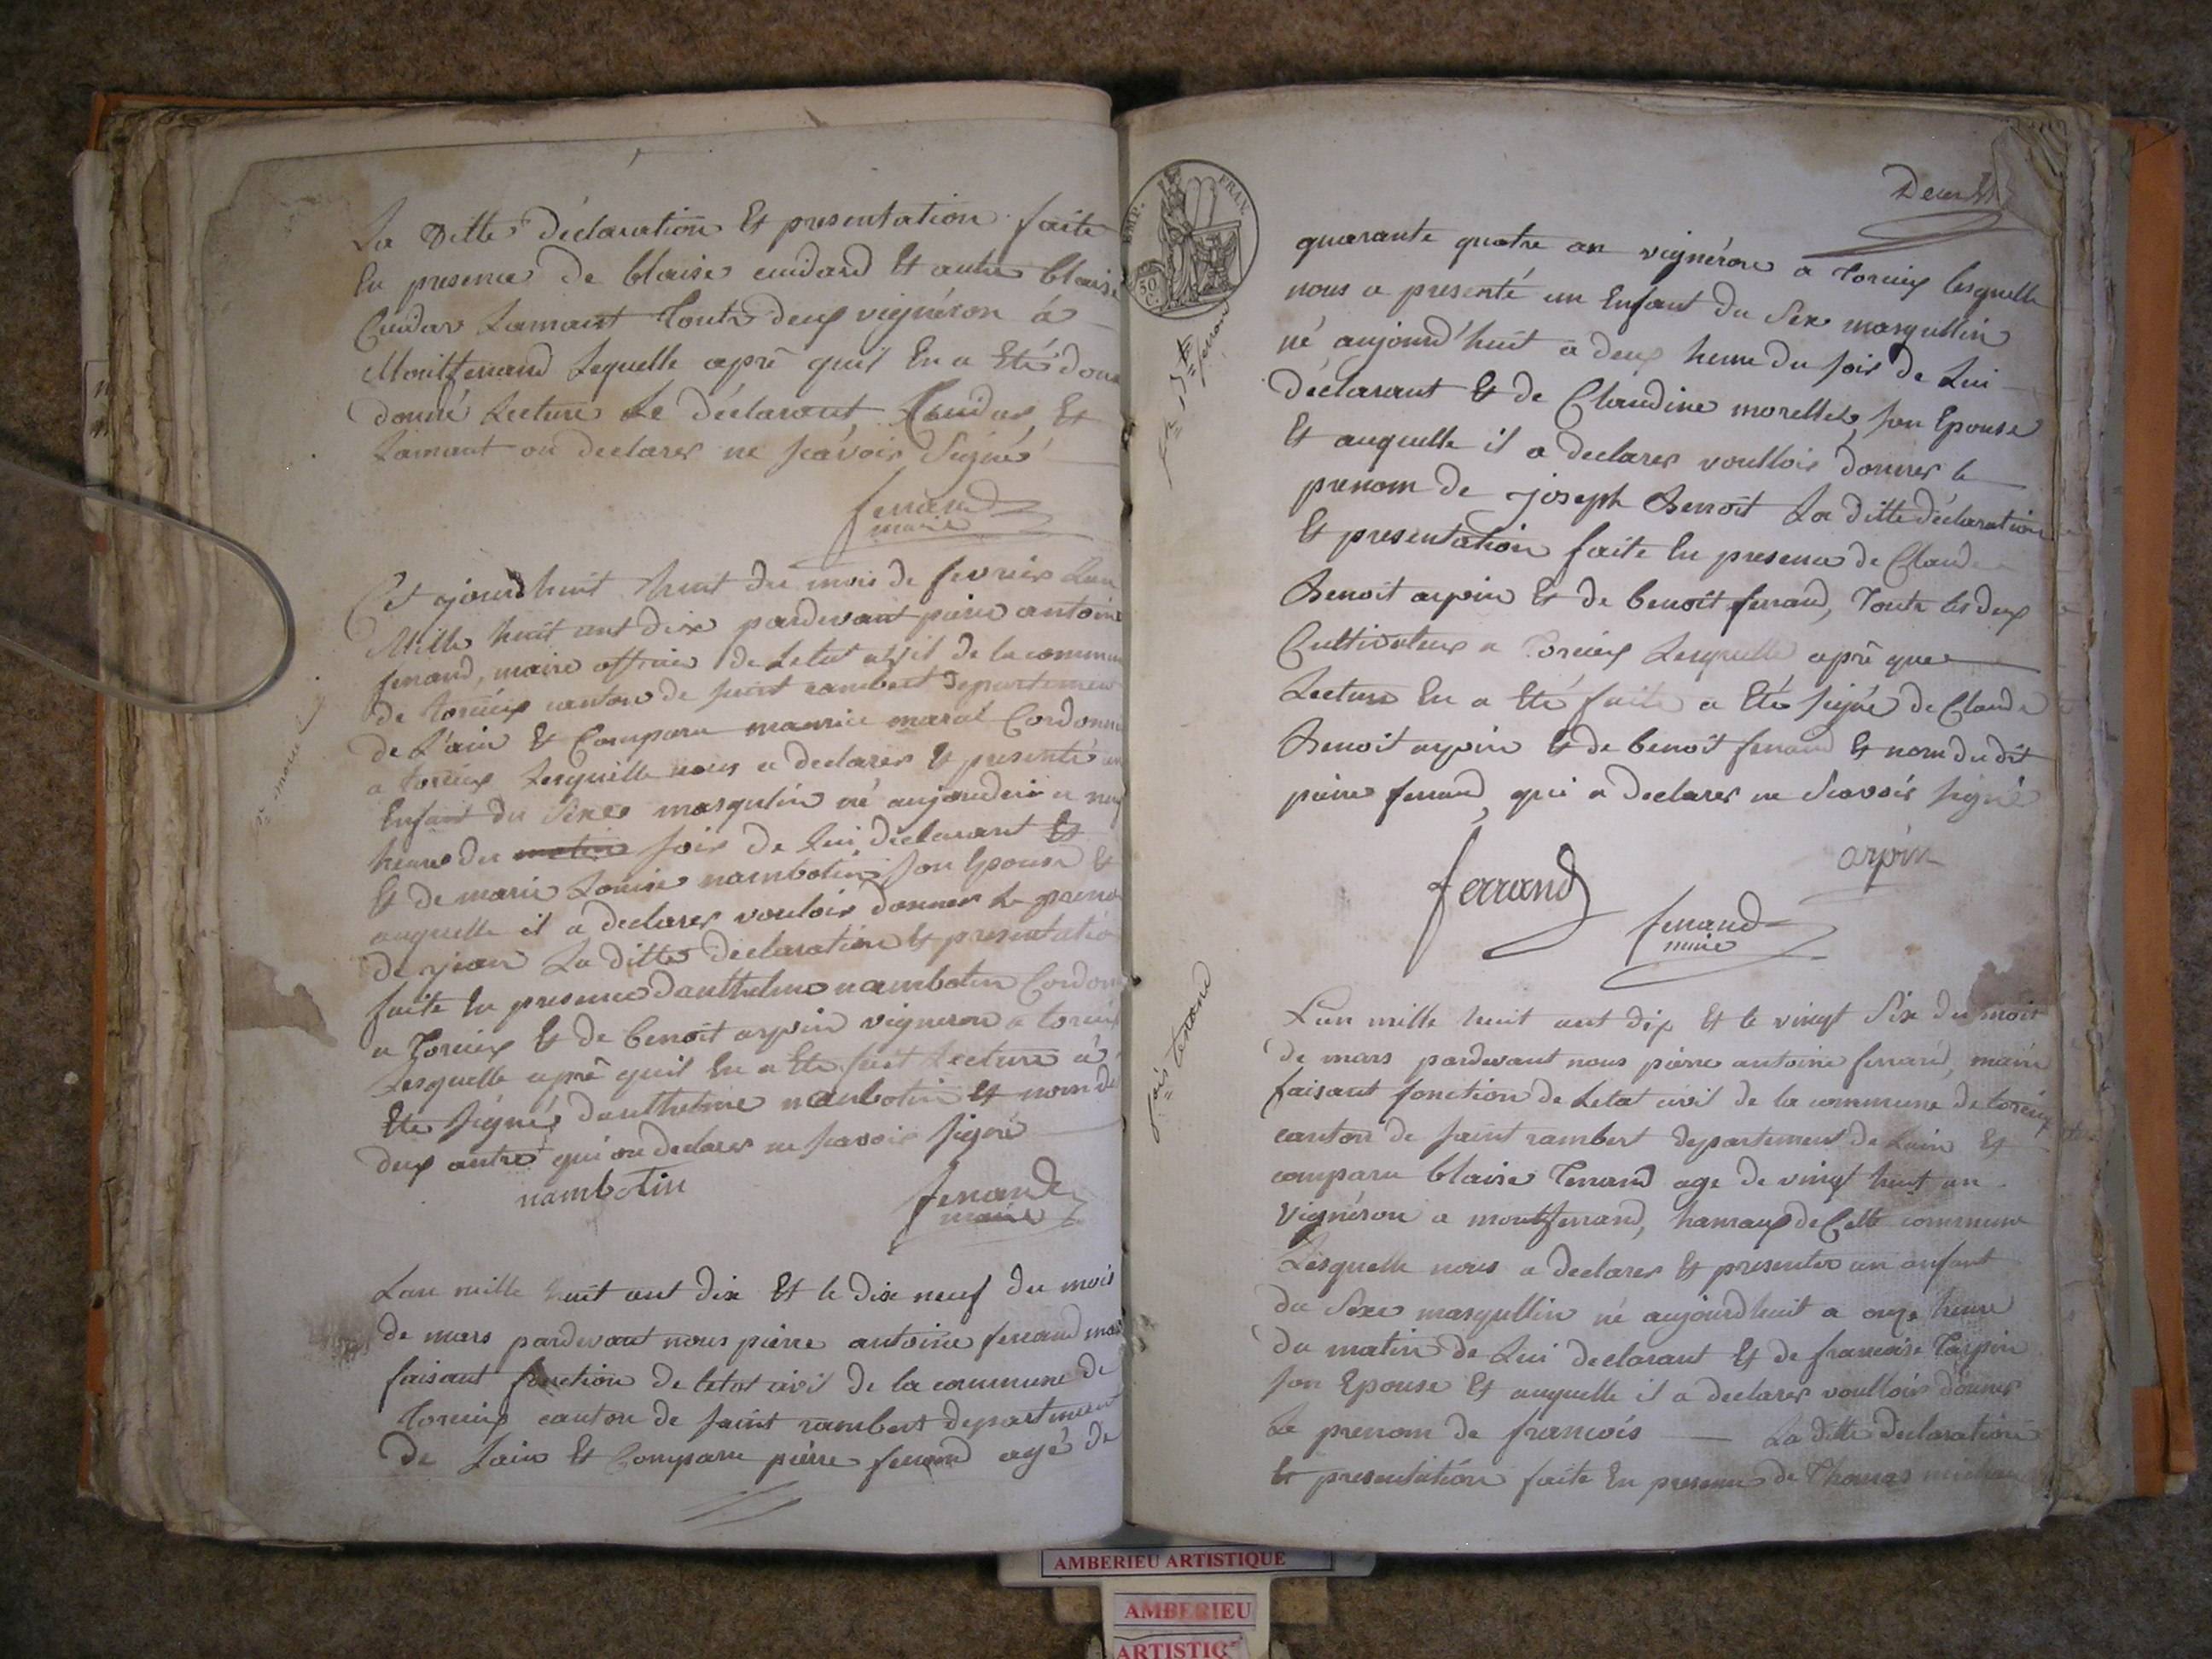 La Ditte Déclaration Et presentation faite
En presence de blaise cuidard Et autre blaise
Cuidar Lamant Toute deux vignéron a
Montferrand Lequelle aprè quil En a Eté donn
donné Lecture Le déclarant, Cuidar, Et
Lamant on declarer ne scavoir Signé
ferrand
maire
Cet jourdhuit huit du mois de fevrier Lan
Mille huit cent dix pardevant pierre antoine
ferrand, maire officier de Letat civil de la commune
de torcieux canton de saint rambert Departement
de L'ain Et Comparu maurice maral Cordonn
a torcieux Lesquelle nous a declarer Et presenté un
Enfant du Sexe masqulin né aujourdhui a neuf
heure du matin soir de Lui déclarant Et
Et de marie Louise nambotin son Epouse Et
auquelle il a declarer vouloir donner Le preno
de jean La ditte declaration Et presentatio
faite En presence danthelme nambotin Cordonn
a Torcieux Et de benoit arpin vigneron a torcieux
Lesquelle aprè quil En a Eté fait Lecture a
Eté signé danthelme nambotin Et nom de
deux autre qui on declarer ne scavoir signé
nambotin
ferrand
maire
Lan mille huit cent dix Et le dix neuf du mois
de mars pardevant nous pierre antoine ferrand mair
faisant fonction de letat civil de la commune de
Torcieux canton de saint rambert departement
de Lain Et Comparu pierre ferrand agé de
EMP. FRAN.
50 C.
Deux
quarante quatre an vignéron a Torcieux lesquelle
nous a presenté un Enfant du Sexe masqullin
né aujourd'huit a deux heure du soir de Lui
déclarant Et de Claudine morellet, son Epouse
Et auquelle il a declarer voulloir donner le
prenom de joseph Benoit La ditte déclaration
Et presentation faite En presence de Claude
Benoit arpin Et de benoit ferrand, Toute les deux
Cultivateur a Torcieux Lesquelle aprè que
Lecture En a Eté faite a Eté signé de Claude
Benoit arpin Et de benoit ferrand Et nom du dit
pierre ferrand, qui a declarer ne Scavoir signé
arpin
ferrand
ferrand
maire
Lan mille huit cent dix Et le vingt Six du mois
de mars pardevant nous pierre antoine ferrand, maire
faisant fonction de Letat civil de la commune de torcieux
canton de saint rambert departement de Lain Et
comparu blaise Tenand age de vingt huit an
Vignéron a montferrand, hamaux de Cette commune
Lesquelle nous a declarer Et presenter un anfant
du Sexe masqullin né aujourdhuit a onze heure
du matin de Lui declarant Et de francoise Tarpin
son Epouse Et auquelle il a declarer voulloir donner
Le prenom de francois La ditte declaration
Et presentation faite En presence de Thomas
fois tenand
AMBERIEU ARTISTIQUE
AMBERIEU
ARTISTIQ